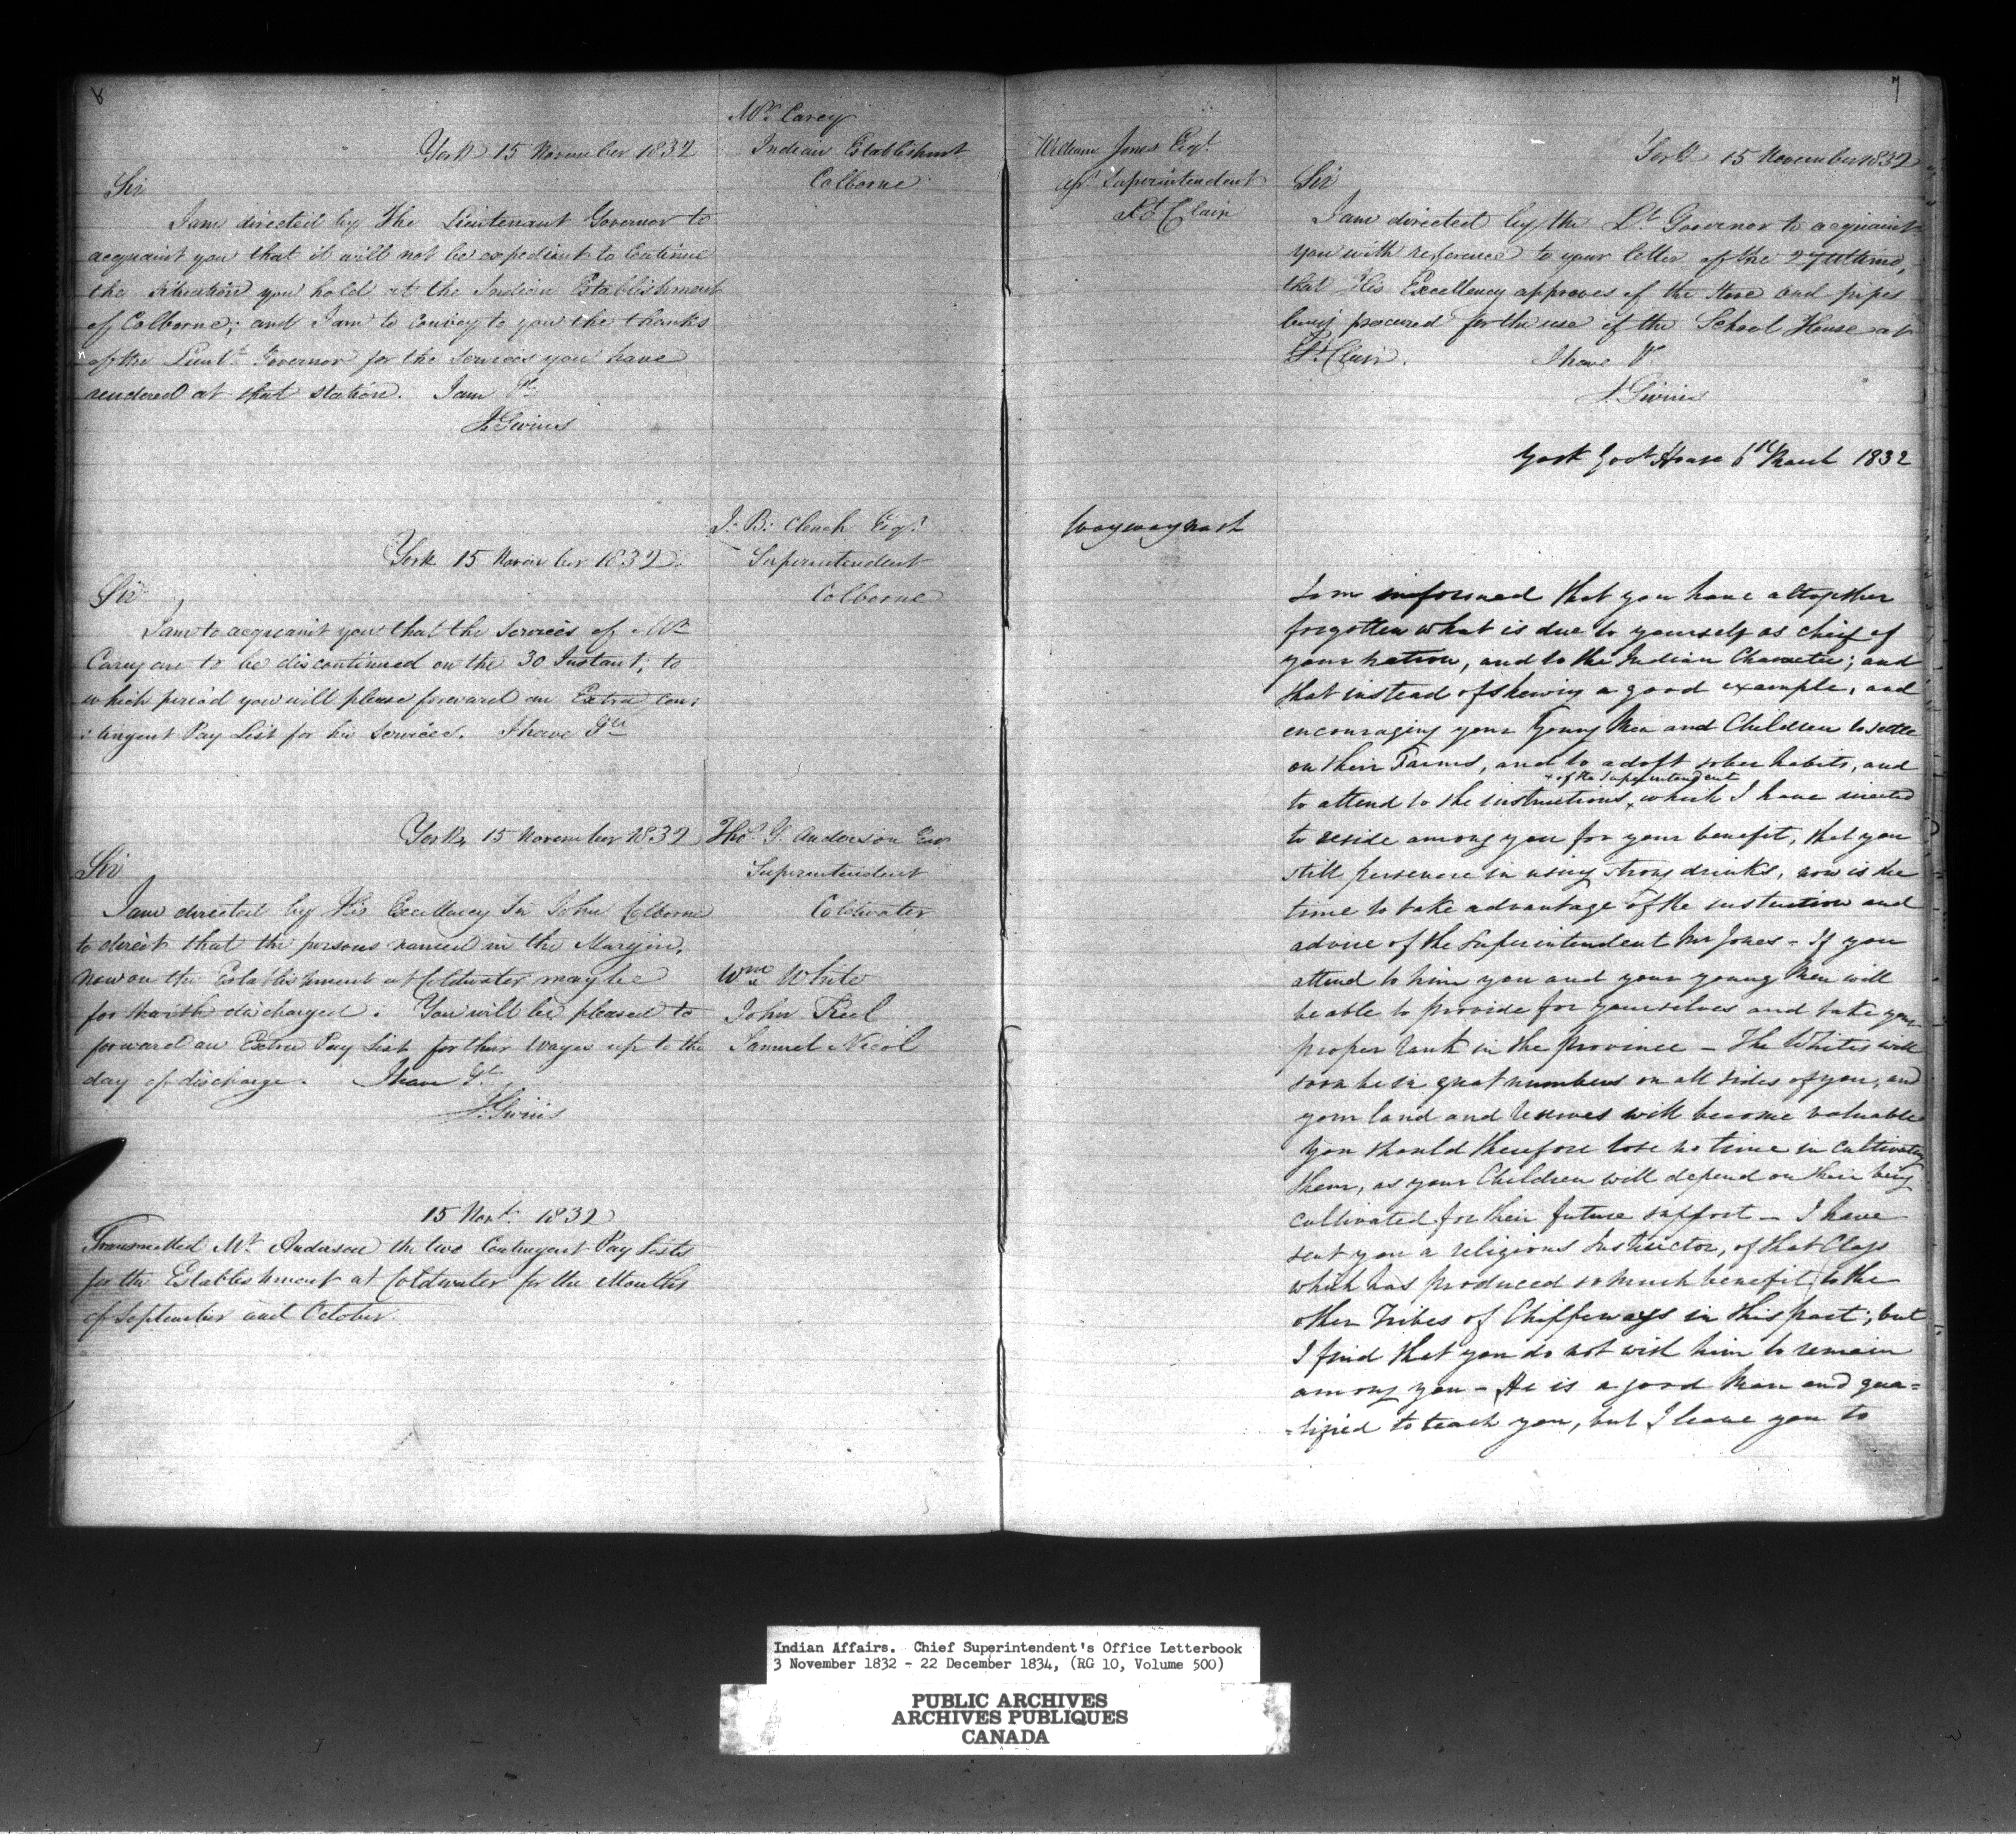 Mr. Carey
Indian Establishmt
Colborne
York 15 November 1832
Sir
I am directed by The Lieutenant Governor to
acquaint you that it will not be expedient to continue
the situation you hold at the Indian Establishment
of Colborne; and I am to convey to you the thanks
of the Lieut. Governor for the services you have
rendered at that station. I am &c
J. Givins
J. B. Clench Esqr.
Superintendent
Colborne
York 15 November 1832.
Sir
I am to acquaint you that the Services of Mr.
Carey are to be discontinued on the 30 Instant; to
which period you will please forward an Extra Con:
:tingent Pay List for his services. I have &c
Thos. G. Anderson Esqr
Superintendent
Coldwater
York, 15 November 1832
Sir
I am directed by His Excellency Sir John Colborne
to direct that the persons named in the Margin,
now on the Establishment at Coldwater may be
forthwith discharged. You will be pleased to
forward an Extra Pay List for their Wages up to the
day of discharge. I have &c.
J. Givins
Wm White
John Reel
Samuel Nicol
15 Novr. 1832
Transmitted Mr. Anderson the two Contingent Pay Lists
for the Establishment at Coldwater for the Months
of September and October.
7
William Jones Esqr.
Asst. Superintendent
St. Clair
York 15 November 1832
Sir
I am directed by the Lt. Governor to acquaint
you with reference to your letter of the 27 Ultimo,
that His Excellency approves of the stove and pipes
being procured for the use of the School House at
St. Clair. I have &c
J. Givins
York Govt House 6th March 1832
Waywaynash
I am informed that you have altogether
forgotten what is due to yourself as chief of
your nation, and to the Indian Character; and
that instead of shewing a good example, and
encouraging your Young Men and Children to settle
on their Farms, and to adopt sober habits, and
to attend to the instructions x of the Superintendent x which I have directed
to reside among you for your benefit, that you
still persevere in using strong drinks, now is the
time to take advantage of the instruction and
advice of the Superintendent Mr Jones - If you
attend to him you and your young Men will
be able to provide for yourselves and take your
proper rank in the province - The Whites will
soon be in great numbers on all sides of you, and
your land and reserves will become valuable
You should therefore lose no time in cultivating
them, as your Children will depend on their being
cultivated for their future support - I have
sent you a religious Instructor, of that Class
which has produced so much benefit to the
other Tribes of Chippeways in this part; but
I find that you do not wish him to remain
among you - He is a good Man and qua=
=lified to teach you, but I leave you to
Indian Affairs. Chief Superintendent's Office Letterbook
3 November 1832 - 22 December 1834, (RG 10, Volume 500)
PUBLIC ARCHIVES
ARCHIVES PUBLIQUES
CANADA